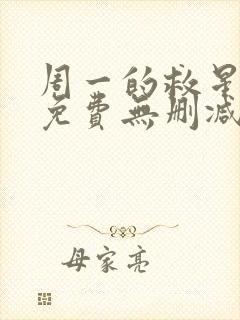 周一的救星
免費無刪減
母家亮